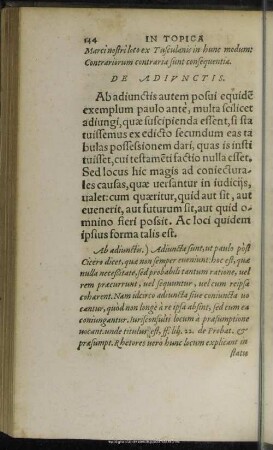 144 IN TOPICA
Marci nostri loco ex Tusculanis in hunc modum:
Contrariorum contraria sunt consequentia.
DE ADIVNCTIS.
Ab adiunctis autem posui equidẽ
exemplum paulo antè, multa scilicet
adiungi, quæ suscipienda essent, si sta
tuissemus ex edicto secundum eas ta
bulas possessionem dari, quas is insti
tuisset, cui testamẽti factio nulla esset.
Sed locus hic magis ad coniectura-
les causas, quæ uersantur in iudicijs,
ualet: cum quæritur, quid aut sit, aut
euenerit, aut futurum sit, aut quid o-
mnino fieri possit. Ac loci quidem
ipsius forma talis est.
Ab adiunctis.) Adiuncta sunt, ut paulo pòst
Cicero dicet, quæ non semper eueniunt: hoc est, quæ
nulla necessitate, sed probabili tantum ratione, uel
rem præcurrunt, uel sequuntur, uel cum reipsa
cohærent. Nam idcirco adiuncta siue coniuncta uo
cantur, quòd non longè à re ipsa absint, sed cum ea
coniungantur. Iurisconsulti locum à præsumptione
uocant. unde titulus est, ff. lib. 22. de Probat. &
præsumpt. Rhetores uero hunc locum explicant in
statu